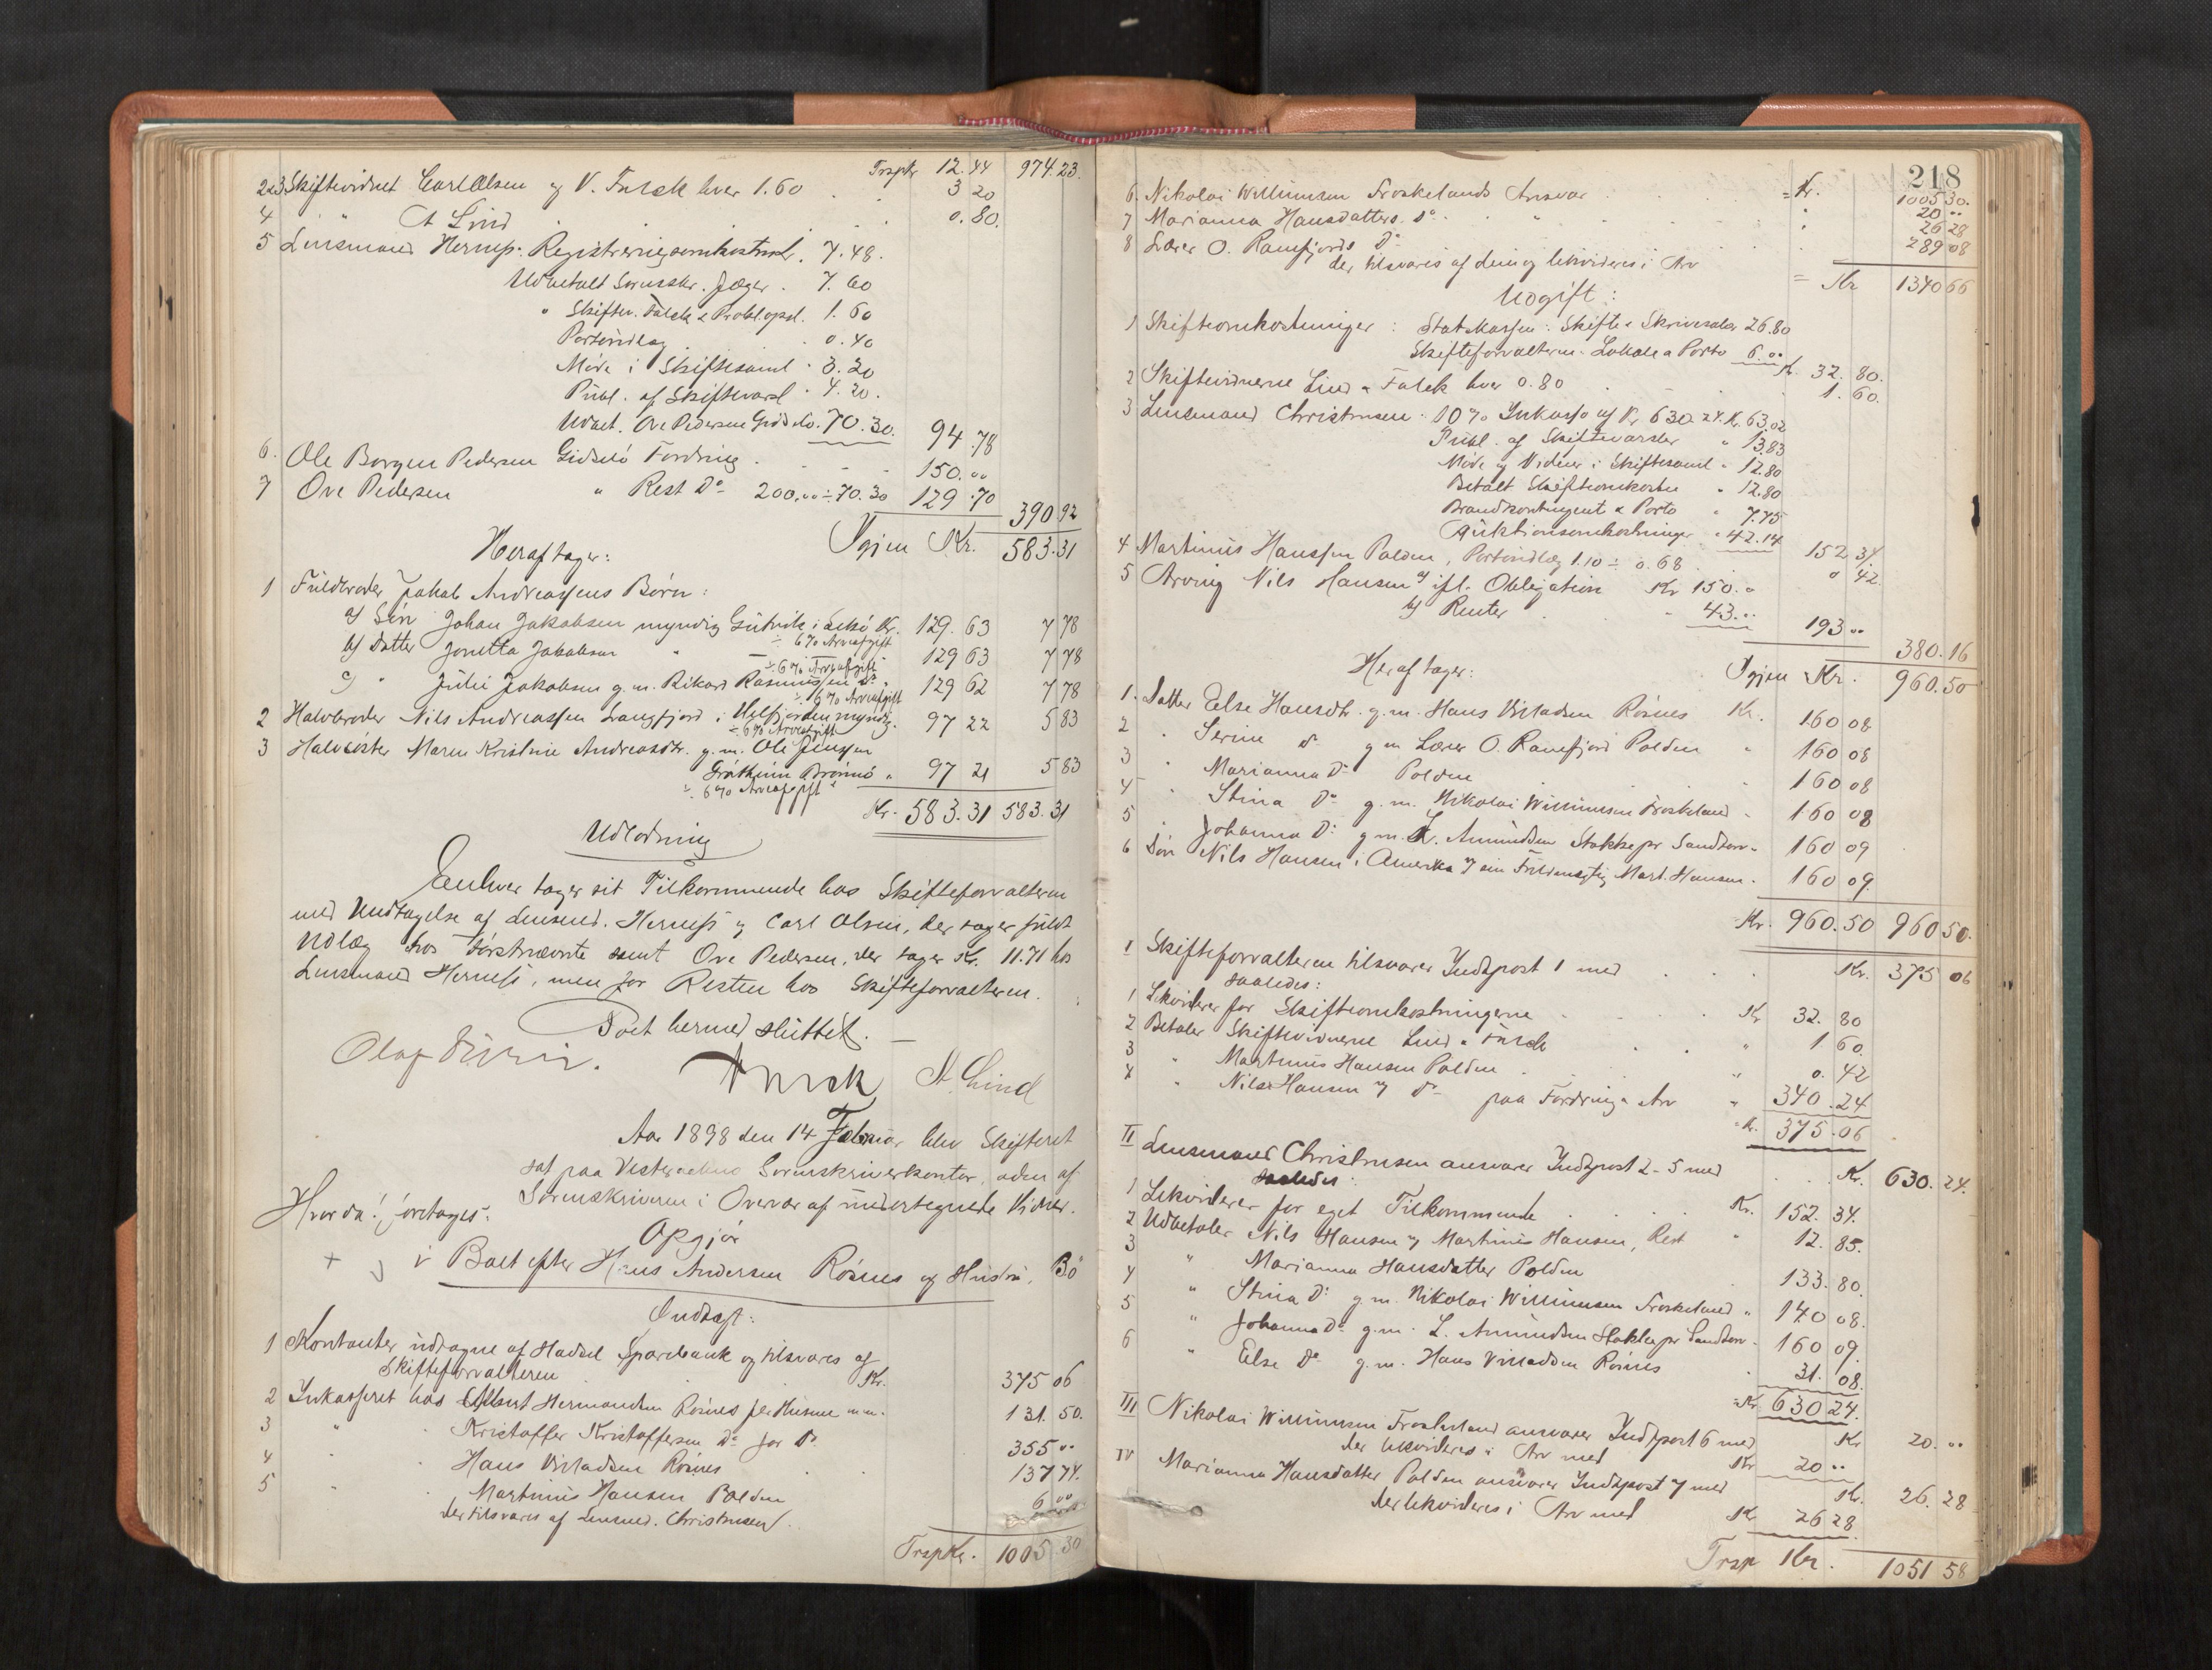 Trspkr 12.44 974.23.
2&3 Skiftevidnet Carl Olsen og V. Falck hver 1.60 . . 3 20
4 " A Lind . . . . 0.80.
5 Lensmand Herness: Registreringsomkostn. 7.48.
Udbetalt Sorenskr. Jæger . 7.60
" Skiftev. Falck & Probl.opsl. 1.60
Portoudlæg . 0.40
Møde i Skiftesaml . 3.20
Publ. af Skiftevarsl . 4.20.
Udbet. Ove Pedersen Gidsø . 70.30. 94.78
6. Ole Borgen Pedersen Gidsø Fordring . . . 150.00
7 Ove Pedersen " Rest Do 200.00 ÷ 70.30 129.70 390 92
Igjen Kr. 583.31
Heraf tager:
1 Fuldbroder Jakob Andreassens Børn:
a) Søn Johan Jakobsen myndig Gutvik i Lekø Kr. 129.63 7 78
÷ 6% Arveafgift
b) Datter Jonetta Jakobsen " 129 63 7 78
÷ 6% Arveafgift
c) " Julie Jakobsen g.m. Rikard Rasmussen Do " 129 62 7 78
÷ 6% Arveafgift
2 Halvbroder Nils Andreassen Langfjord i Velfjorden myndig. 97 22 5 83
÷ 6% Arveafgift
3 Halvsøster Maren Kristine Andreasdtr. g.m. Ole Jenssen
Brønnø " 97 21 5 83
÷ 6% Arveafgift
Kr. 583.31 583.31
Udlodning
Enhver tager sit Tilkommende hos Skifteforvalteren
med Undtagelse af Lensmd. Herness og Carl Olsen, der tager fuldt
Udlæg hos førstnævnte samt Ove Pedersen, der tager Kr. 11.71 hos
Lensmand Herness, men for Resten hos Skifteforvalteren.
Boet hermed sluttet. —
Falck A. Lind
Aar 1898 den 14 Februar blev Skifteret
sat paa Vesteraalens Sorenskriverkontor, aden af
Sorenskriveren i Overvær af undertegnede Vidner.
Hvorda! foretages:
Opgjør
i Boet efter Hans Andersen Rösnes og Hustru, Bö
Indtægt:
1 Kontanter udtagne af Hadsel Sparebank og tilsvares af
Skifteforvalteren Kr. 375 06
2 Inkasseret hos Albert Hermandsen Rösnes for Husene m.m. 131.50.
3 " " Kristoffer Kristoffersen Do for Do 355 00
4 " " Hans Villadsen Rösnes . . 137 74.
5 " " Martinus Hansen Polden 6 00
der tilsvares af Lensmd. Christensen
Trsp Kr. 1005.30
218
Kr. 1005 30.
6. Nikolai Willumsen Froskelands Ansvar . . . " 20 00
7 Marianna Hansdatters do . . " 26 28
8 Lærer O. Ranefjords Do . . 289 08
der tilsvares af dem og likvideres i Arv
= Kr 1340 66
Udgift:
1 Skifteomkostninger: Statskassen: Skifte & Skrivesaler 26.80
Skifteforvalteren: Lokale & Porto 6.00 Kr. 32.80.
2 Skiftevidnerne Lind & Falck hver 0.80 . . 1.60.
3 Lensmand Christensen: 10% Inkasso af Kr. 630.24. Kr. 63.02
Publ. af Skiftevarsler " 13.83
Møde og Vidner i Skiftesaml " 12.80
Betalt Skifteomkostn " 12.80
Brandkontingent & Porto " 7.75
Auktionsomkostninger " 42.14 152 34
4 Martinus Hanssen Polden, Portoudlæg 1.10 ÷ 0.68 . 0 42.
5 Arving Nils Hansen a) ifl. Obligation Kr 150.00
b) Renter . . 43.00 193 00
380.16
Igjen Kr. 960.50
Heraf tager:
1. Datter Else Hansdtr. g.m. Hans Villadsen Rösnes Kr. 160 08
2 " Serine do g m Lærer O. Ranefjord Polden " 160 08
3 " Marianna Do Polden . 160 08
4 " Stina Do g.m. Nikolai Willumsen Froskeland . 160 08
5 " Johanna Do g.m. L. Amundsen Stokke pr Sandtorv . 160 09
6 Søn Nils Hansen i Amerika v/ sin Fuldmægtig Mart. Hansen . 160 09
Kr. 960.50 960 50.
I Skifteforvalteren tilsvarer Indtpost 1 med . . . Kr. 375 06
saaledes:
1 Likviderer for Skifteomkostningerne . . . Kr 32.80
2 Betaler Skiftevidnerne Lind & Falck . . " 1 60.
3 " Martinus Hansen Polden . . . " 0.42
4 " Nils Hansen v/ do paa Fordring & Arv " 340.24
Kr. 375.06
II Lensmand Christensen ansvarer Indtpost 2-5 med . . . Kr. 630.24.
saaledes:
1 Likviderer for eget Tilkommende . . . . Kr. 152.34.
2 Udbetaler Nils Hansen v/ Martinus Hansen, Rest " 12.85.
3 " Marianna Hansdatter Polden . 133.80.
4 " Stina Do g.m. Nikolai Willumsen Froskeland " 140 08.
5 " Johanna Do g.m. L. Amundsen Stokke pr Sandtorv . 160 09.
6 " Else Do g.m. Hans Villadsen Rösnes . 31.08.
Kr 630 24.
III Nikolai Willumsen Froskeland ansvarer Indtpost 6 med Kr 20.00
der likvideres i Arv med Kr 20 00
IV Marianna Hansdatter Polden ansvarer Indtpost 7 med Kr. 26.28
der likvideres i Arv med Kr 26 28.
Trsp Kr. 1051 58